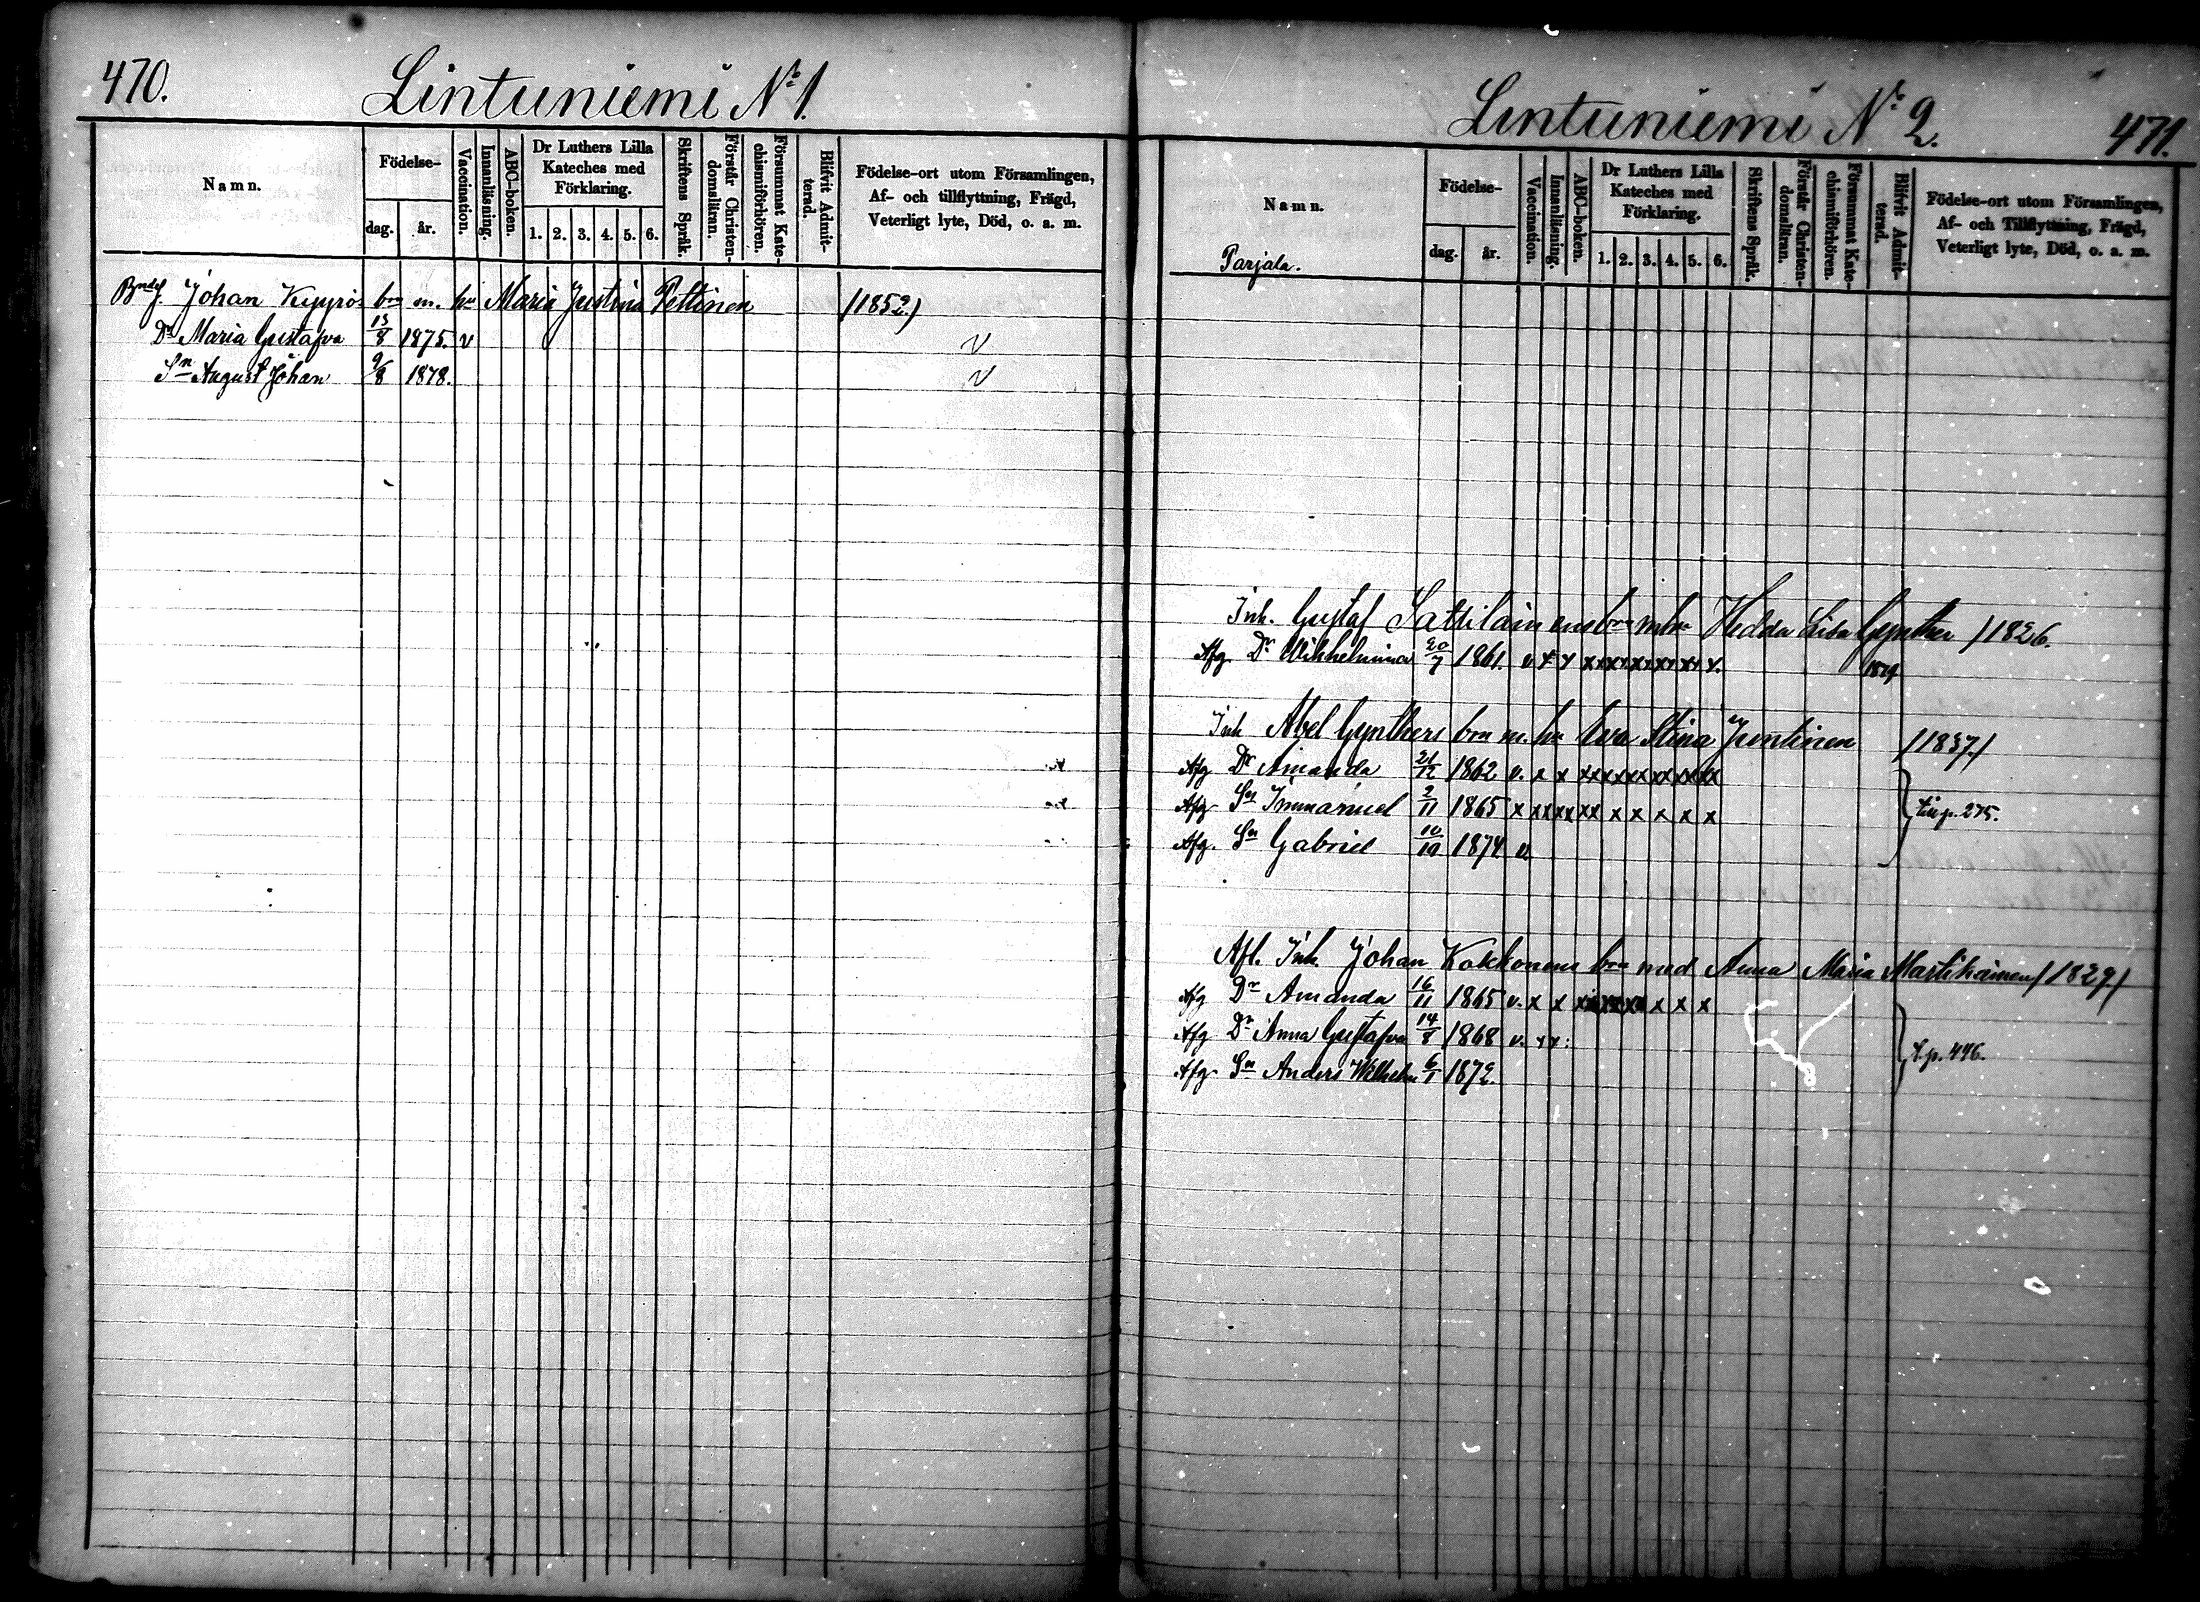 470.
Lintuniemi No 1.
Namn.
Födelse-
dag.
år.
Vaccination.
Innanläsning.
ABC-boken.
Dr Luthers Lilla
Kateches med
Förklaring.
1. 2. 3. 4. 5. 6.
Skriftens Språk.
Förstår Christen-
domsläran.
Försummat Kate-
chismiförhören.
Blifvit Admit-
terad.
Födelse-ort utom Församlingen,
Af- och tillflyttning, Frägd,
Veterligt lyte, Död, o. a. m.
Johan Kyyrös brn m. hu Maria Justina Pettinen (1852.)
Dr Maria Gustafva 13/8 1875. v v
Sn August Johan 9/8 1878. v
Lintuniemi No 2.
471.
Namn.
Parjala.
Födelse-
dag.
år.
Vaccination.
Innanläsning.
ABC-boken.
Dr Luthers Lilla
Kateches med
Förklaring.
1. 2. 3. 4. 5. 6.
Skriftens Språk.
Förstår Christen-
domsläran.
Försummat Kate-
chismiförhören.
Blifvit Admit-
terad.
Födelse-ort utom Församlingen,
Af- och Tillflyttning, Frägd,
Veterligt lyte, Död, o. a. m.
Inh. Gustaf brn Hedda Lisa Gynther (1826.
Afg. Dr Wilhelmina 20/7 1861. v x x xxxxxxxxxxx. 1879
Inh Abel Gynthers brn m. hu Eva Stina Juntinen (1837.)
Afg Dr Amanda 21/12 1862 v. x x xxxxxxxxxxx
Afg. Sn Immanuel 2/11 1865 x xxxx xx x x x x x till p. 275.
Afg. Sn Gabriel 10/10 1874 v.
Afl. Inh. Johan Kokkonens brn med Anna Maria Martikainen (1829)
Afg Dr Amanda 16/11 1865 v. x x xxxxxx x x x
Afg Dr Anna Gustafva 14/8 1868 v. x x: t. p. 446.
Afg. Sn Anders Wilhelm 6/1 1872.